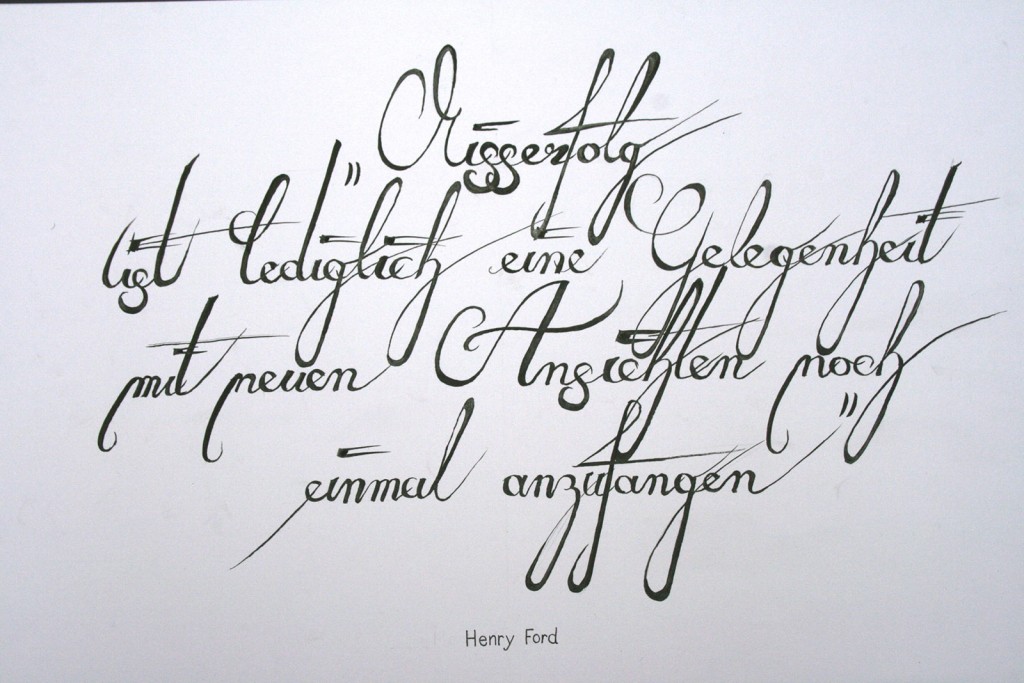 "Misserfolg
ist lediglich eine Gelegenheit
mit neuen Ansichten noch
einmal anzufangen"
Henry Ford